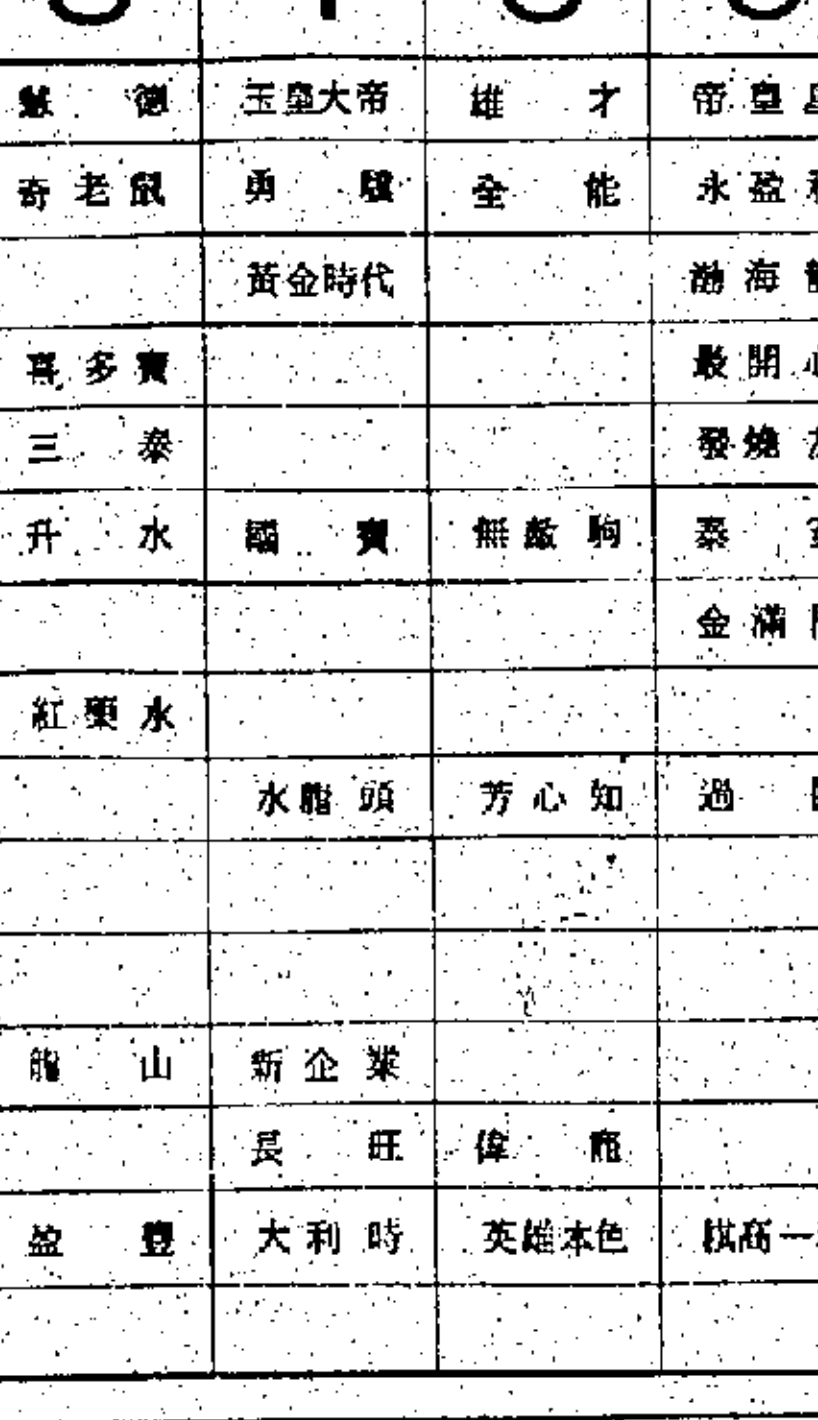 德 玉皇大帝 雄才 帝皇
奇老鼠 勇 全能 永盈
黃金時代 渤海
喜多寶 最開
三泰 發燒
升水 國寶 無敵駒 泰
金滿
紅藥水
水龍頭 芳心知 過
龍山 新企業
長旺 偉
盈豐 大利時 英雄本色 棋高一